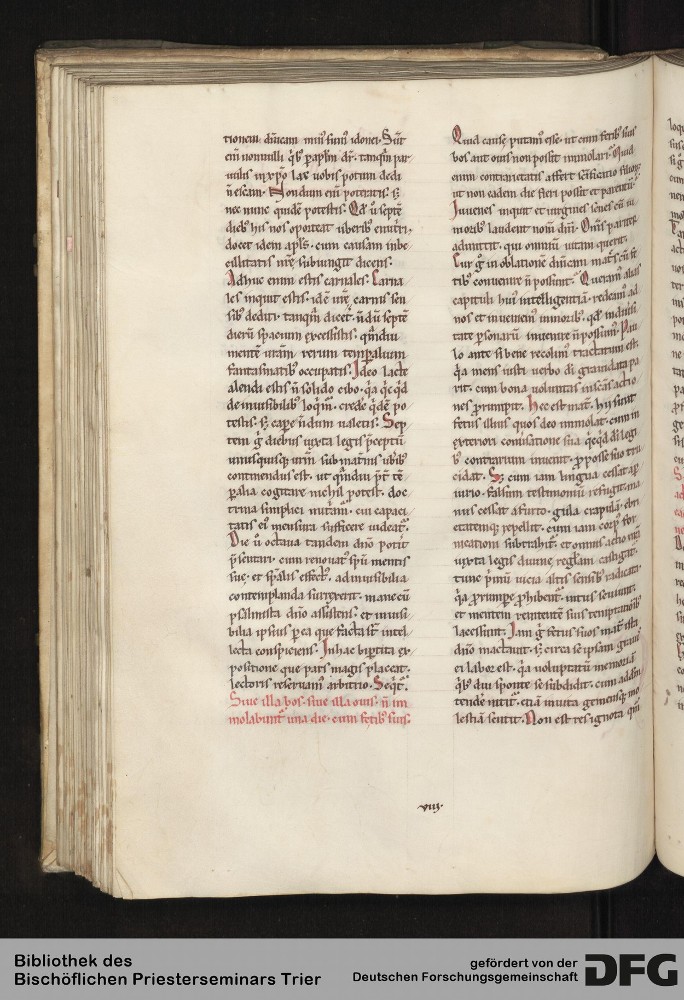 tionem dn̄icam min᷒ sum᷒ idonei. Sūt
eni᷒ nonnulli qͥb᷒ ꝑ apłm dr̄. tanqͣm par
uulis in xp̄o lac uobis potum dedi
n̄ escam. Nondum eni᷒ poteratis. sꝫ
nec nunc quidē potestis. Qd̄ u᷒ septē
dieb᷒ his nos oporteat uberib᷒ enutri,
docet idem apłs. cum causam inbe
cillitatis nr̄e subiungit dicens.
Adhuc enim estis carnales. Carna
les inquit estis. idē ur̄e carnis sen
sib᷒ dediti. tanqͣm dicet. n̄dū septē
dierū spacium excessistis. qͣmdiu
mentē ur̄am. rerum temꝑalium
fantasmatib᷒ occupatis. Ideo lacte
alendi estis n̄ solido cibo. qͥa qͥcqͥd
de inuisibilib᷒ loqͥm᷒. crede᷒ qͥdē po
testis. sꝫ cape᷒ n̄dum ualetis. Sep
tem g̊ diebus iuxta legis p̄ceptū
unusquisque ur̄m sub mat᷒nis ub᷒ib᷒
continendus est. ut qͣmdiu p̄t᷒ tē
ꝑalia cogitare nichil potest. doc
trina simplici nut᷒am᷒. cui capaci
tatis ei᷒ mensura sufficere uideat᷒.
Die u᷒ octaua tandem dn̄o potīt
p̄sentari. cum renouat᷒ sp̄u mentis
sue. et sp̄alis effect᷒. ad inuisibilia
contemplanda surrexerit. mane cū
psalmista dn̄o assistens. et inuisi
bilia ipsius ꝑ ea que facta st̄ intel
lecta conspiciens. In hac bip̄tita ex
positione que pars magis placeat.
lectoris reseruam᷒ arbitrio. Seqͥt᷒.
Siue illa bos. siue illa ouis. n̄ im
molabunt᷒ una die. cum fetib᷒ suis.
Quid cause putam᷒ esse. ut cum fetib᷒ suis
bos aut ouis non possit immolari. Quid
enim contrarietatis affert sacrificio filior᷒.
ut non eadem die fieri possit et parentū.
Iuuenes inquit et uirgines senes cū iu
niorib᷒ laudent nom̄ dn̄i. Om̄s pariter
admittit. qui omniū uitam querit.
Cur g̊ in oblatione dn̄icam mat᷒s cū fe
tib᷒ conuenire n̄ possunt. Queram᷒ alias
capituli hui᷒ intelligentiā. redeam᷒ ad
nos et inueniem᷒ in morib᷒. qd̄ in diuisi
tate ꝑsonarū inuenire n̄ possum᷒. Pau
lo ante si bene recolim᷒ tractatum est.
qͥa mens iusti uerbo dī grauidata pa
rit. cum bona uoluntas in sc̄as actio
nes prorumpit. Hec est mat᷒. hii sunt
fetus illius quos deo immolat. cum in
exteriori conuersatione sua qͥcqͥd dn̄i legi
b᷒ contrarium inuenit. ꝓ posse suo tru
cidat. Sꝫ cum iam lingua cessat a ꝑ
iurio. falsum testimoniū refugit. ma
nus cessat a furto. gula crapulā. ebri
etatemqꝫ repellit. cum iam corp᷒ for
nicationi subtrahit᷒. et omnis actio ur̄a
iuxta legis diuine reglam castigat᷒.
tunc p̄mū uicia altis sensib᷒ radicata.
qͥa prumpe ꝓhibent᷒. intus seuiunt.
et mentem renitentē suis temptationib᷒
lacessunt. Iam g̊ fetus suos mat᷒ ista
dn̄o mactauit. sꝫ circa se ipsam graui᷒
ei labor est. qͥa uoluptatū memoriā
qͥb᷒ diu sponte se subdidit. cum addisc
tende nitit᷒. etiā inuita gemensqꝫ mo
lestiā sentit. Non est res ignota qm̄
viij.
Bibliothek des
Bischöflichen Priesterseminars Trier
gefördert von der
Deutschen Forschungsgemeinschaft
DFG